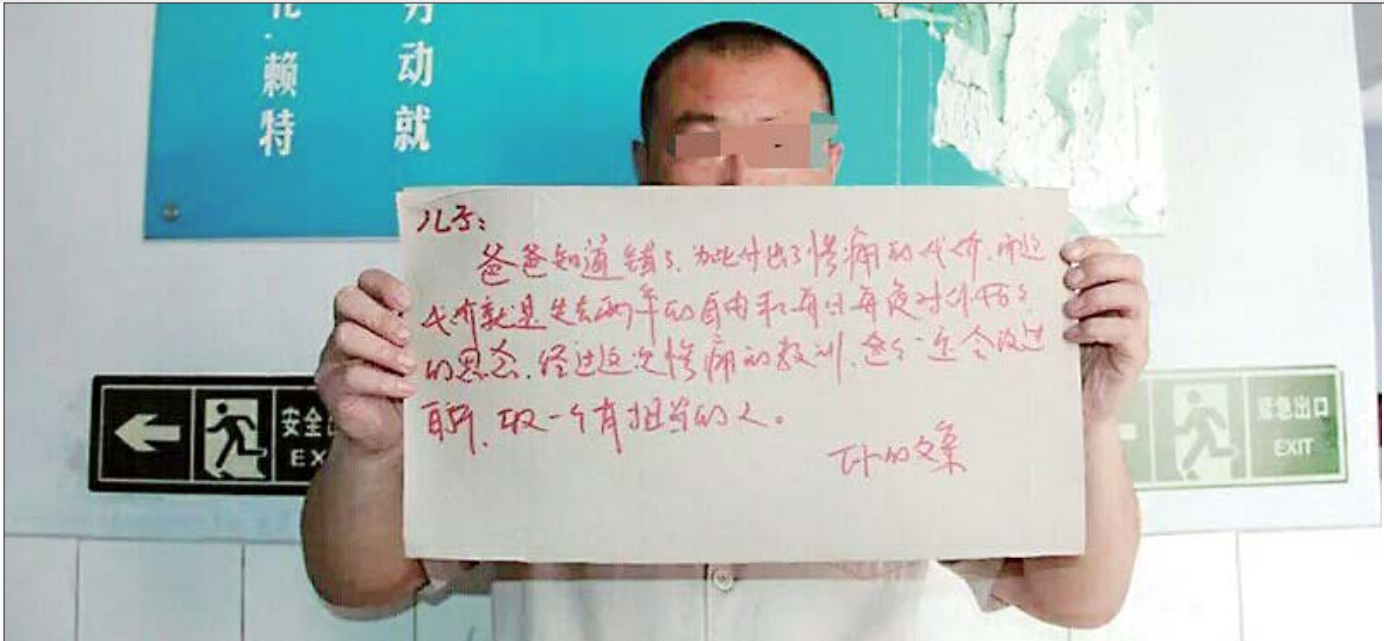 化·赖特
劳动就
儿子：
爸爸知道错了，为此付出了惨痛的代价，而这
代价就是失去两年的自由和每日每夜对你
的思念。经过这次惨痛的教训，爸爸一定会改过
自新，取一个有担当的人。
安全
EX
紧急出口
EXIT